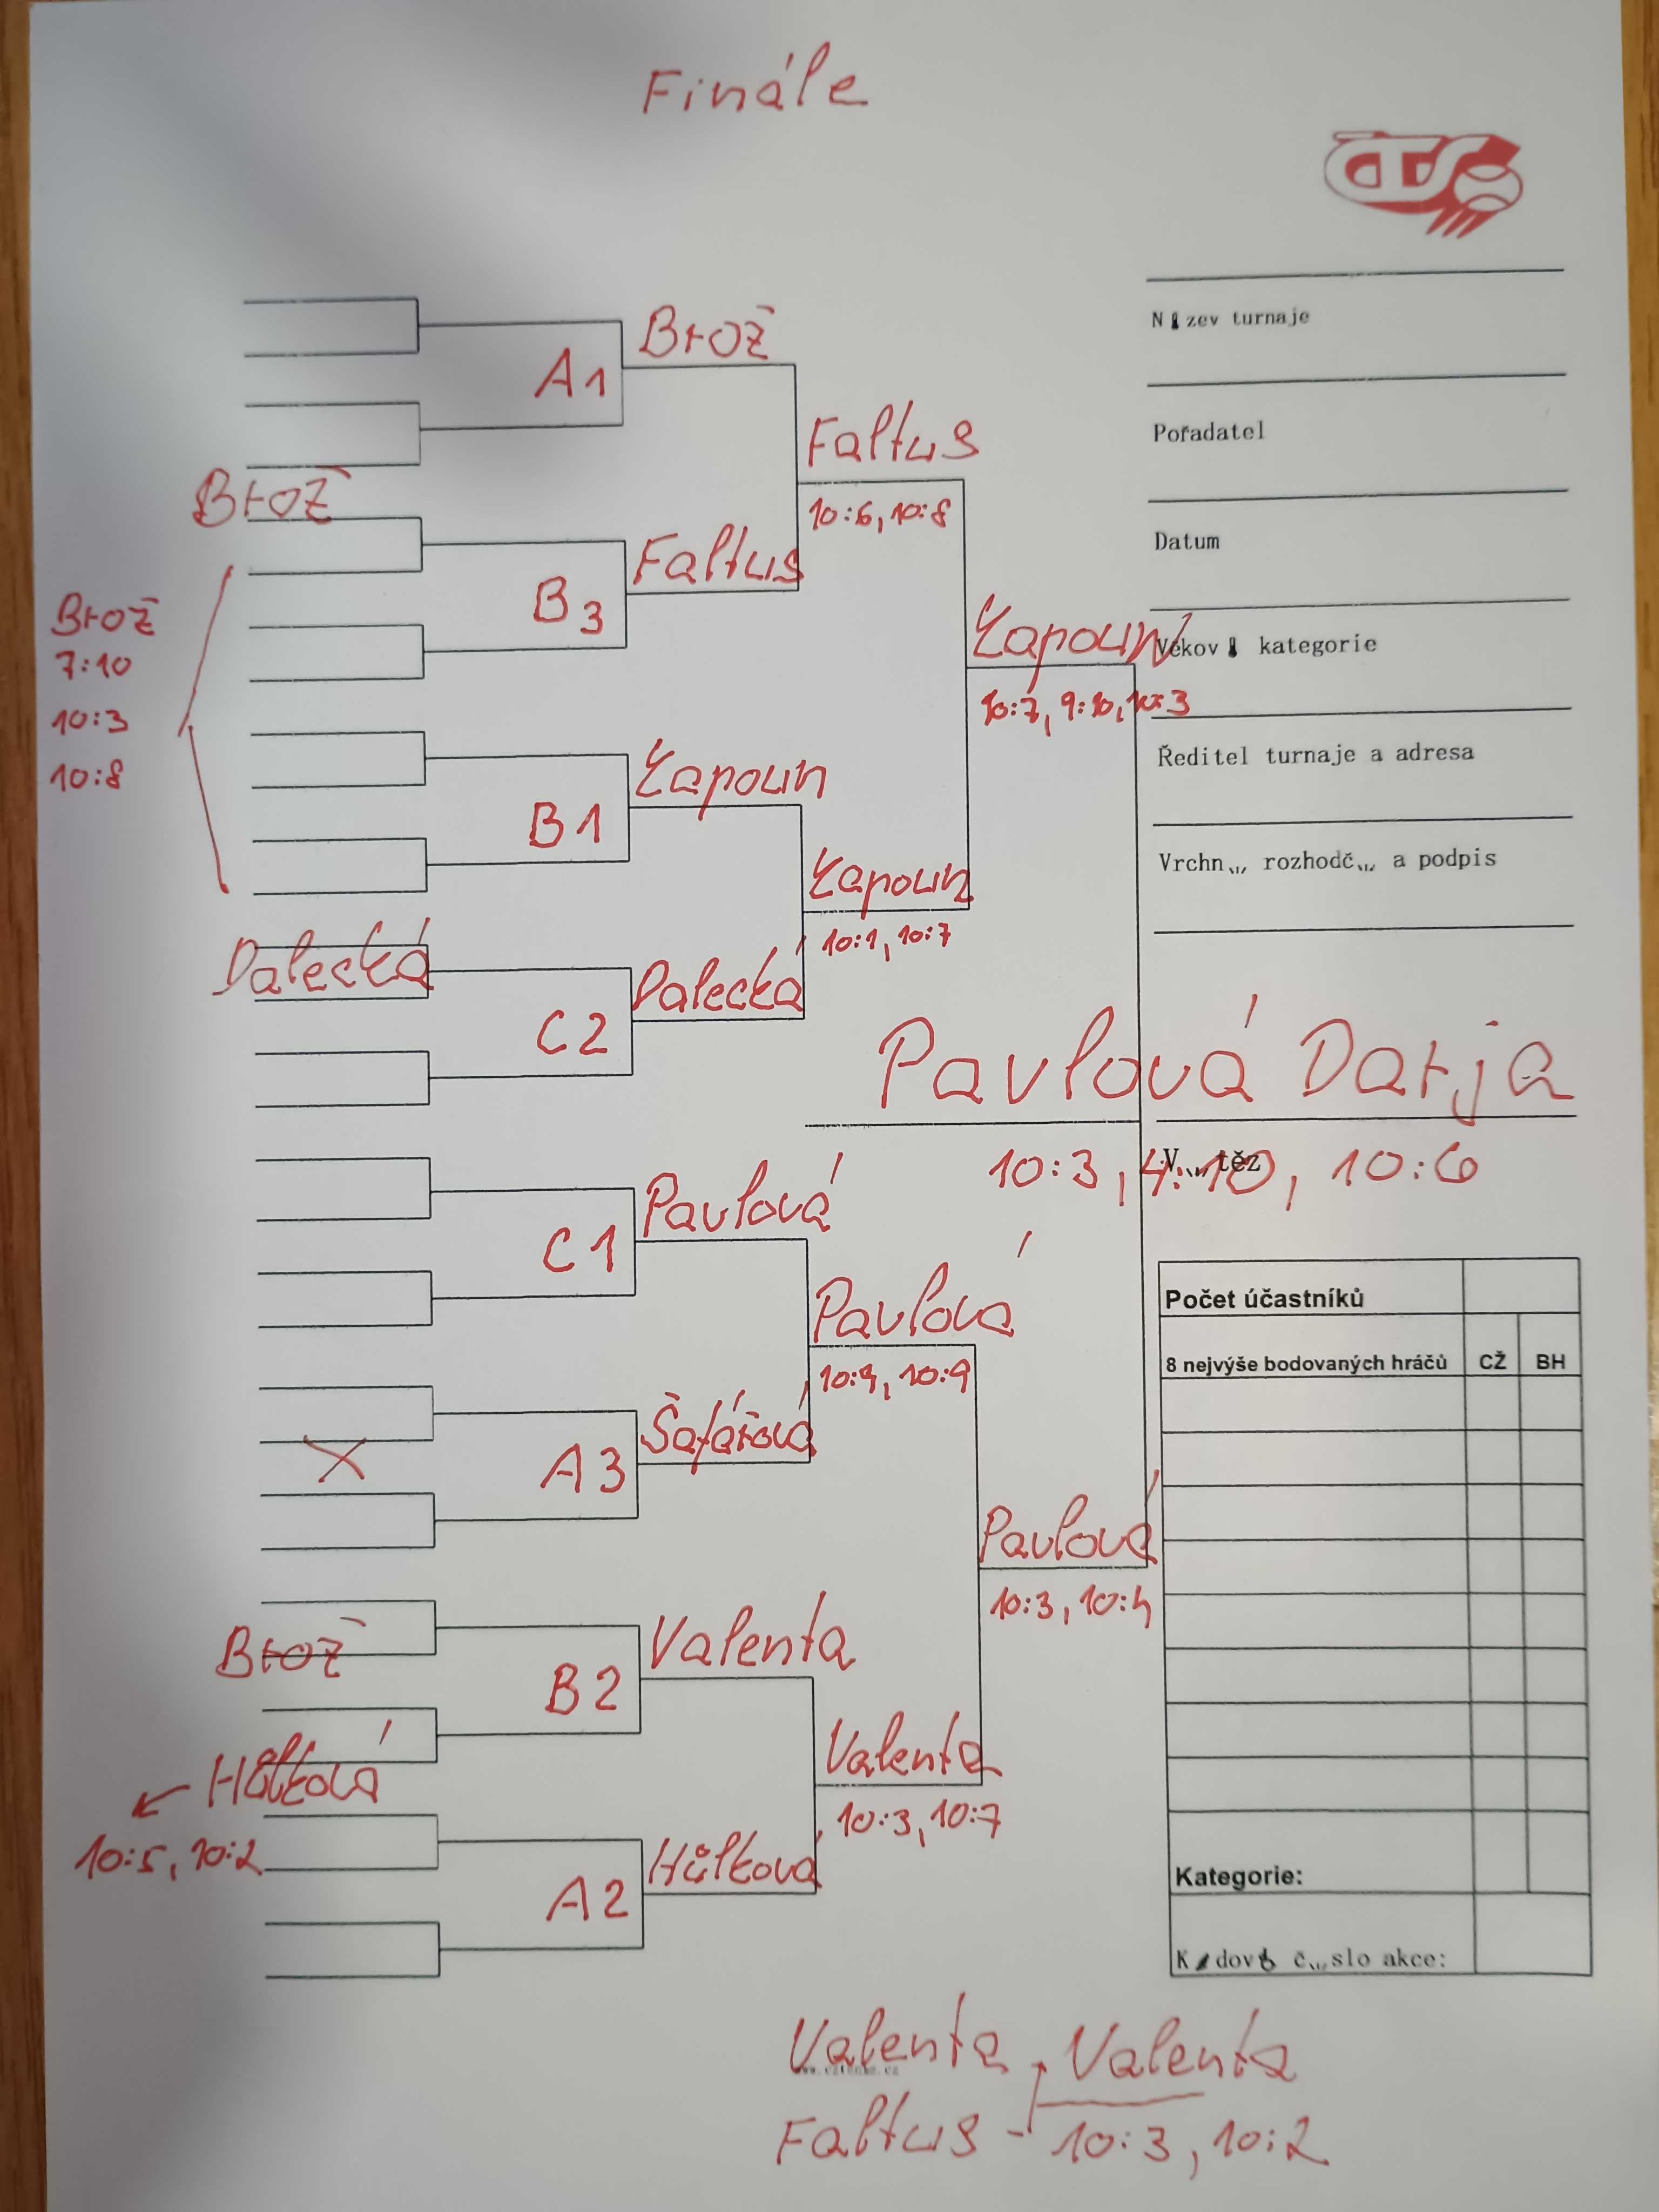 Finále
ČTS
Brož
A1
Název turnaje
Faltus
10:6, 10:8
Pořadatel
Brož
Faltus
B3
Datum
Brož
7:10
10:3
10:8
Łapoun
10:7, 9:10, 10:3
Věková kategorie
Łapoun
B1
Ředitel turnaje a adresa
Łapoun
10:1, 10:7
Vrchní rozhodčí a podpis
Dalecká
Dalecká
C2
Pavlová Darja
10:3, 4:10, 10:6
Vítěz
Pavlová
C1
Pavlová
10:9, 10:9
Počet účastníků
8 nejvýše bodovaných hráčů CŽ BH
Šafářová
A3
Pavlová
10:3, 10:4
Valenta
Brož
B2
Valenta
10:3, 10:7
Hůlková
10:5, 10:2
Hůlková
A2
Kategorie:
Kódové číslo akce:
Valenta Valenta
Faltus - 10:3, 10:2